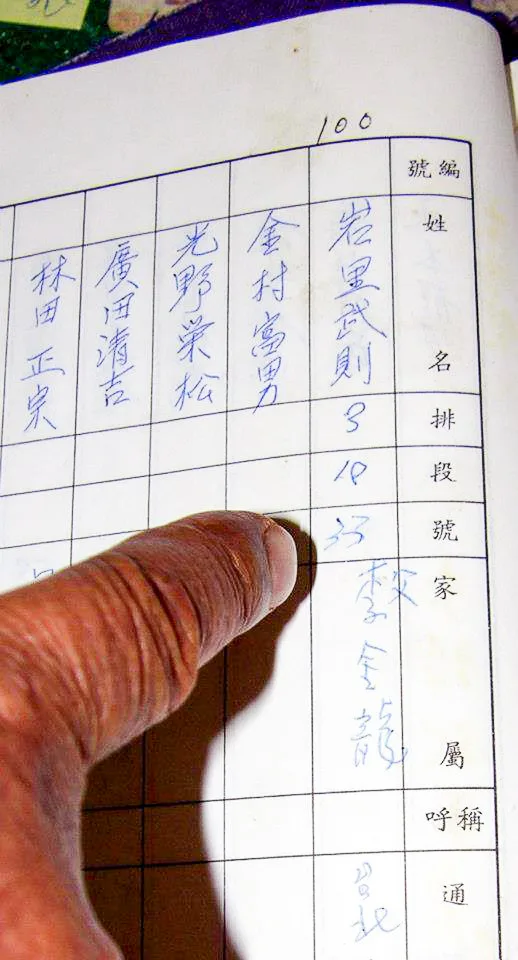 100
編號
姓名
排
段
號
家屬
稱呼
通
岩里武則
3
18
33
父
李金龍
台北
金村富男
光野榮松
廣田清吉
林田正宗